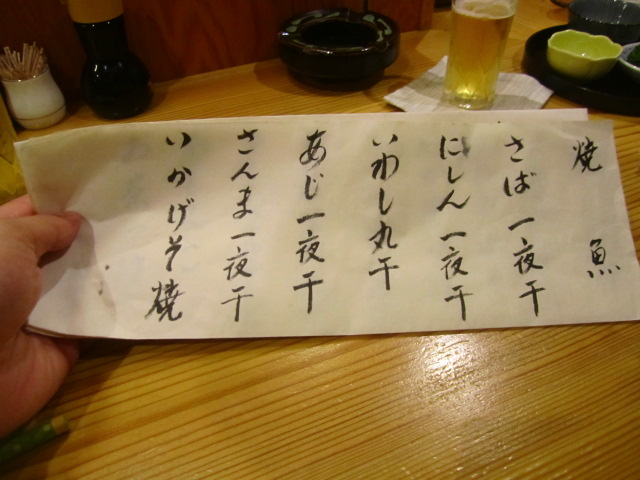 焼魚
さば一夜干
にしん一夜干
いわし丸干
あじ一夜干
さんま一夜干
いかげそ焼